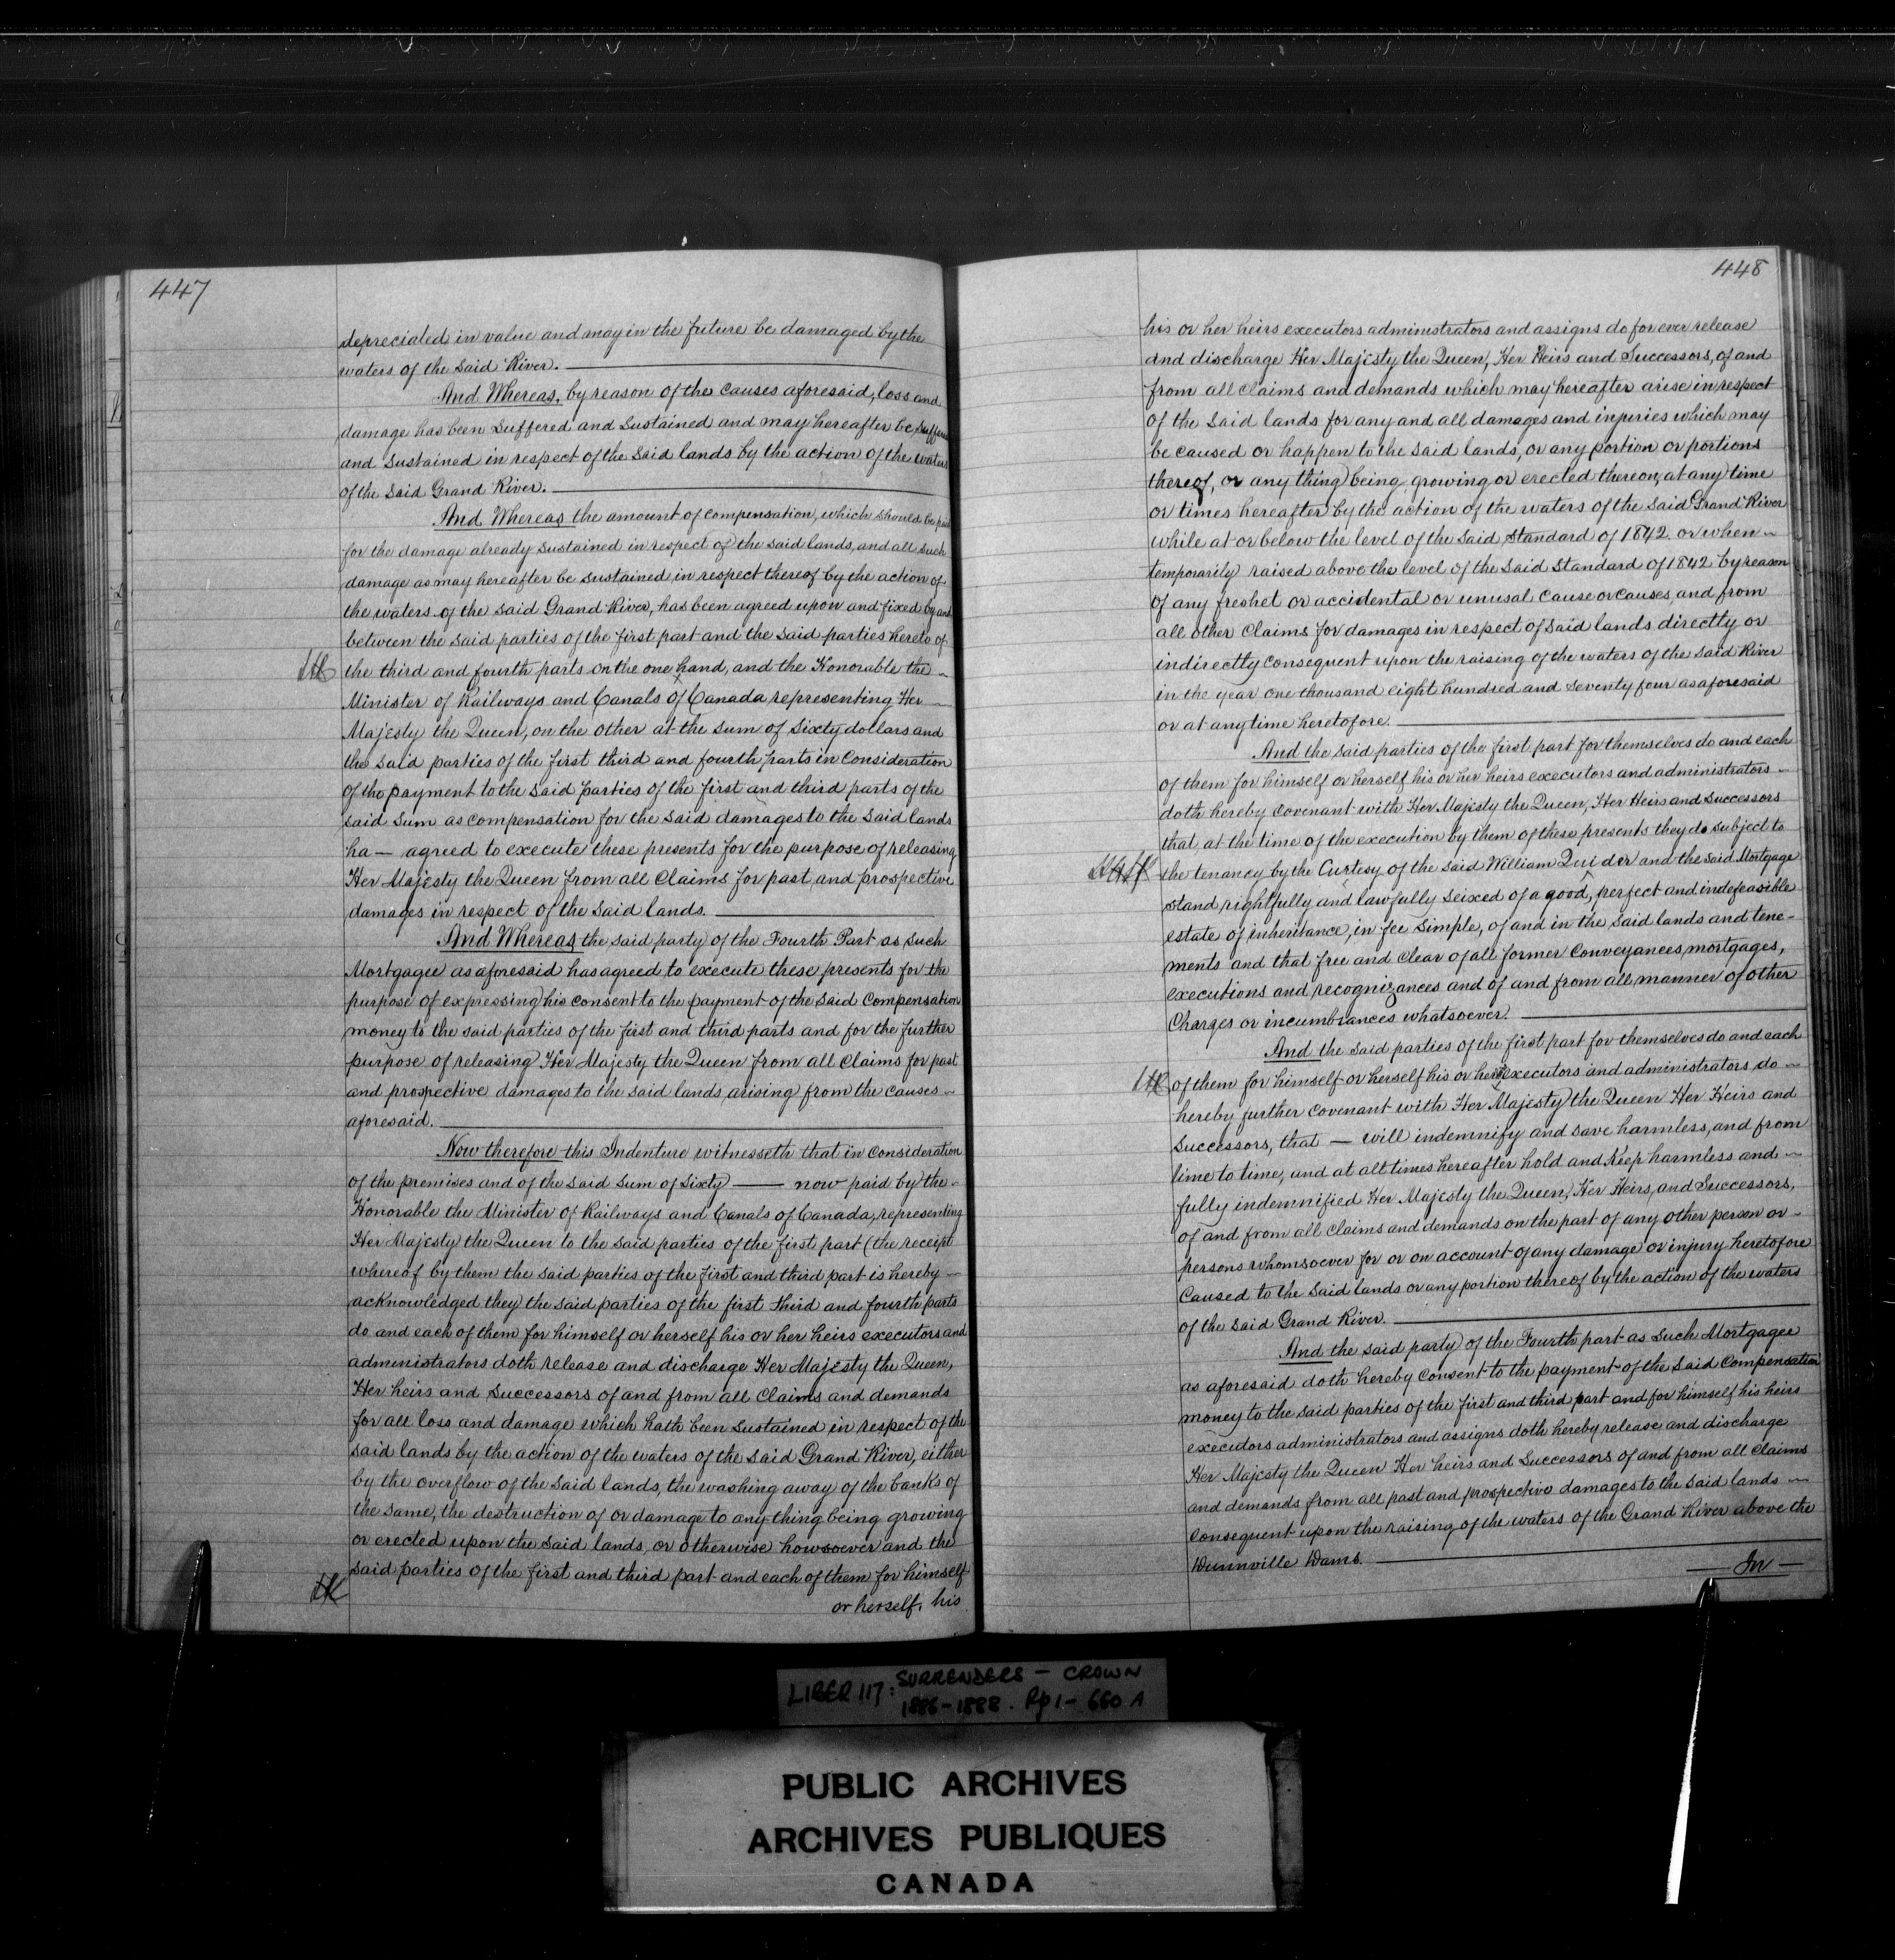 447
depreciated in value and may in the future be damaged by the
waters of the said River.
And Whereas, by reason of the causes aforesaid, loss and
damage has been suffered and sustained and may hereafter be suffered
and sustained in respect of the said lands by the action of the waters
of the said Grand River.
And Whereas the amount of compensation, which should be paid
for the damage already sustained in respect of the said lands, and all such
damage as may hereafter be sustained in respect thereof by the action of
the waters of the said Grand River, has been agreed upon and fixed by and
between the said parties of the first part and the said parties hereto of
the third and fourth parts on the one hand, and the Honorable the
Minister of Railways and Canals of Canada representing Her
Majesty the Queen, on the other at the sum of Sixty dollars and
the said parties of the first third and fourth parts in consideration
of the payment to the said parties of the first and third parts of the
said sum as compensation for the said damages to the said lands
ha — agreed to execute these presents for the purpose of releasing
Her Majesty the Queen from all claims for past and prospective
damages in respect of the said lands.
And Whereas the said party of the Fourth Part as such
Mortgagee as aforesaid has agreed to execute these presents for the
purpose of expressing his consent to the payment of the said compensation
money to the said parties of the first and third parts and for the further
purpose of releasing Her Majesty the Queen from all claims for past
and prospective damages to the said lands arising from the causes
aforesaid.
Now therefore this Indenture witnesseth that in consideration
of the premises and of the said sum of Sixty — now paid by the
Honorable the Minister of Railways and Canals of Canada, representing
Her Majesty the Queen to the said parties of the first part (the receipt
whereof by them the said parties of the first and third part is hereby
acknowledged they the said parties of the first third and fourth parts
do and each of them for himself or herself his or her heirs executors and
administrators doth release and discharge Her Majesty the Queen,
Her heirs and successors of and from all claims and demands
for all loss and damage which hath been sustained in respect of the
said lands by the action of the waters of the said Grand River, either
by the overflow of the said lands, the washing away of the banks of
the same, the destruction of or damage to any thing being growing
or erected upon the said lands, or otherwise howsoever and the
said parties of the first and third part and each of them for himself
or herself, his
448
his or her heirs executors administrators and assigns do for ever release
and discharge Her Majesty the Queen, Her Heirs and Successors, of and
from all claims and demands which may hereafter arise in respect
of the said lands for any and all damages and injuries which may
be caused or happen to the said lands, or any portion or portions
thereof, or any thing being growing or erected thereon, at any time
or times hereafter by the action of the waters of the said Grand River
while at or below the level of the said Standard of 1842 or when
temporarily raised above the level of the said standard of 1842 by reason
of any freshet or accidental or unusal cause or causes, and from
all other claims for damages in respect of said lands directly or
indirectly consequent upon the raising of the waters of the said River
in the year one thousand eight hundred and seventy four as aforesaid
or at any time heretofore.
And the said parties of the first part for themselves do and each
of them for himself or herself his or her heirs executors and administrators
doth hereby covenant with Her Majesty the Queen, Her Heirs and Successors
that at the time of the execution by them of these presents they do subject to
the tenancy by the Curtesy of the said William Quider and the said Mortgage
stand rightfully and lawfully seixed of a good, perfect and indefeasible
estate of inheritance, in fee simple, of and in the said lands and tene-
ments and that free and clear of all former conveyances, mortgages,
executions and recognizances and of and from all manner of other
Charges or incumbrances whatsoever.
And the said parties of the first part for themselves do and each
of them for himself or herself his or her executors and administrators do
hereby further covenant with Her Majesty the Queen Her Heirs and
Successors, that — will indemnify and save harmless, and from
time to time, and at all times hereafter hold and keep harmless and
fully indemnified Her Majesty the Queen, Her Heirs, and Successors,
of and from all claims and demands on the part of any other person or
persons whomsoever for or on account of any damage or injury heretofore
caused to the said lands or any portion thereof by the action of the waters
of the said Grand River.
And the said party of the Fourth part as such Mortgagee
as aforesaid doth hereby consent to the payment of the said compensation
money to the said parties of the first and third part and for himself his heirs
executors administrators and assigns doth hereby release and discharge
Her Majesty the Queen Her heirs and successors of and from all claims
and demands from all past and prospective damages to the said lands
consequent upon the raising of the waters of the Grand River above the
Dunnville Dams.
In
LIBER 117: SURRENDERS - CROWN
1886-1888. Pp 1-660 A
PUBLIC ARCHIVES
ARCHIVES PUBLIQUES
CANADA